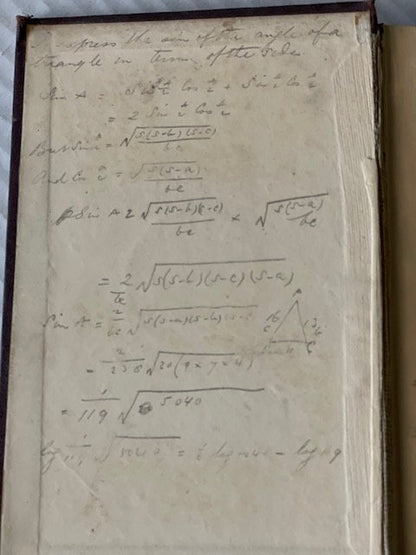 express the sin of the angle of a
triangle in terms of the side
Sin A = Sin A/2 Cos A/2 + Sin A/2 Cos A/2
= 2 Sin A/2 Cos A/2
But Sin = √(s(s-b)(s-c)) / bc
And Cos = √(s(s-a)) / bc
Sin A 2 √(s(s-b)(s-c)) / bc × √(s(s-a)) / bc
= 2/bc √(s(s-b)(s-c)(s-a))
A
Sin A = 2/bc √(s(s-a)(s-b)(s-c)
16 13
c b
C
= 2/238 √(20(9×7×4)
= 1/119 √5040
log √5040 = log - log